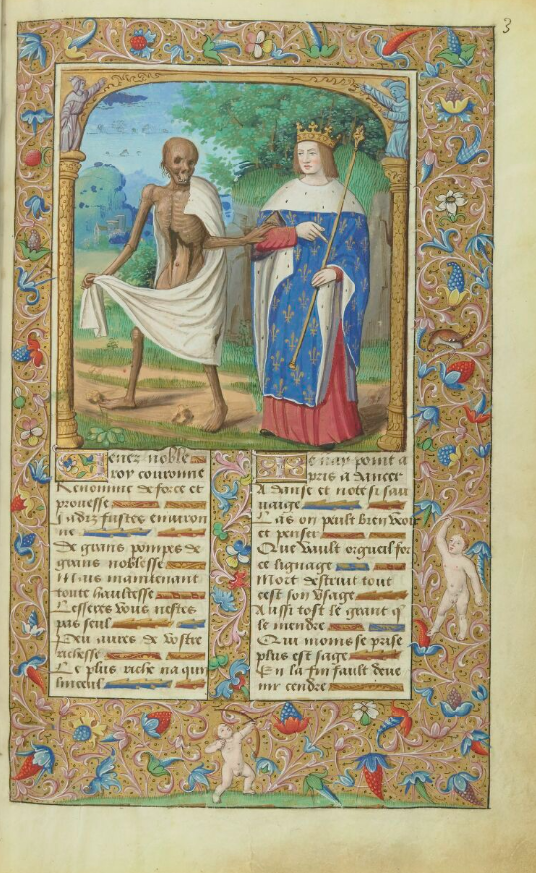 3
Venez noble
roy couronne
Renomme de force et
prouesse
Jadiz fustes enuiron
ne
De grans pompes de
grans noblesse
Mais maintenant
toute haultesse
Lesseres vous nestes
pas seul
Peu aures de vostre
richesse
Le plus riche na qun
linceul
Je nay point a
pris a dancer
A danse et note si sau
uaige
Las on peult bien veoir
et penser
Que vault orgueil for
ce lignaige
Mort destruit tout
cest son vsage
Aussi tost le grant q
le mendre
Qui moins se prise
plus est sage
En la fin fault deue
nir cendre